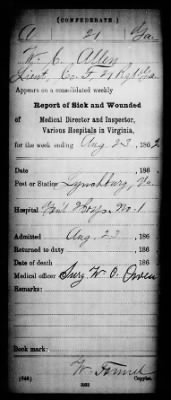 (CONFEDERATE.)
A 21 Ga.
W. C. Allen
Lieut, Co. F, 21 Rgt Ga.
Appears on a consolidated weekly
Report of Sick and Wounded
of Medical Director and Inspector,
Various Hospitals in Virginia,
for the week ending Aug 23, 1862
Date , 186
Post or Station Lynchburg, Va.
Hospital Genl Hosp. No. 1
Admitted Aug. 23, 186
Returned to duty , 186
Date of death , 186
Medical officer Surg W. O. Owen
Remarks:
Book mark:
Copyist.